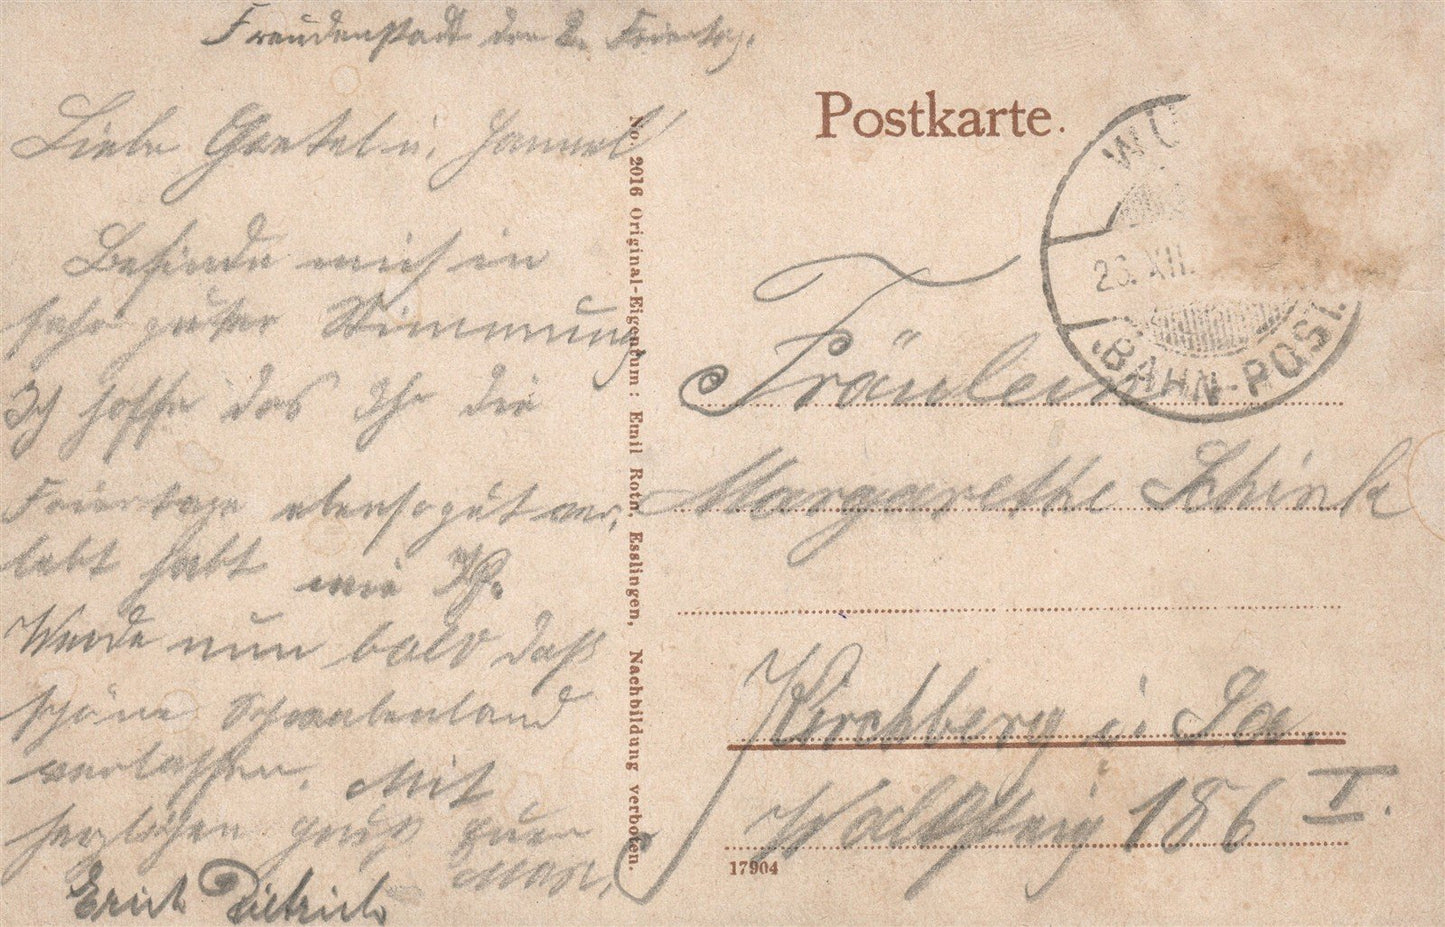 Freudenstadt den 2. Feiertag.
Liebe Gretel u.
Befinde mich in
sehr guter Stimmung
Ich hoffe das Ihr die
Feiertage ebensogut ver,
lebt habt wie Ich.
Werde nun bald daß
schöne Schwabenland
verlassen. Mit
herzlichen Gruß euer
Max.
Erich Dietrich
No. 2016 Original-Eigentum: Emil Roth, Esslingen, Nachbildung verboten.
Postkarte.
26. XII.
BAHN-POST.
Fräulein
Margarethe Schink
Kirchberg i Sa.
186 I.
17904